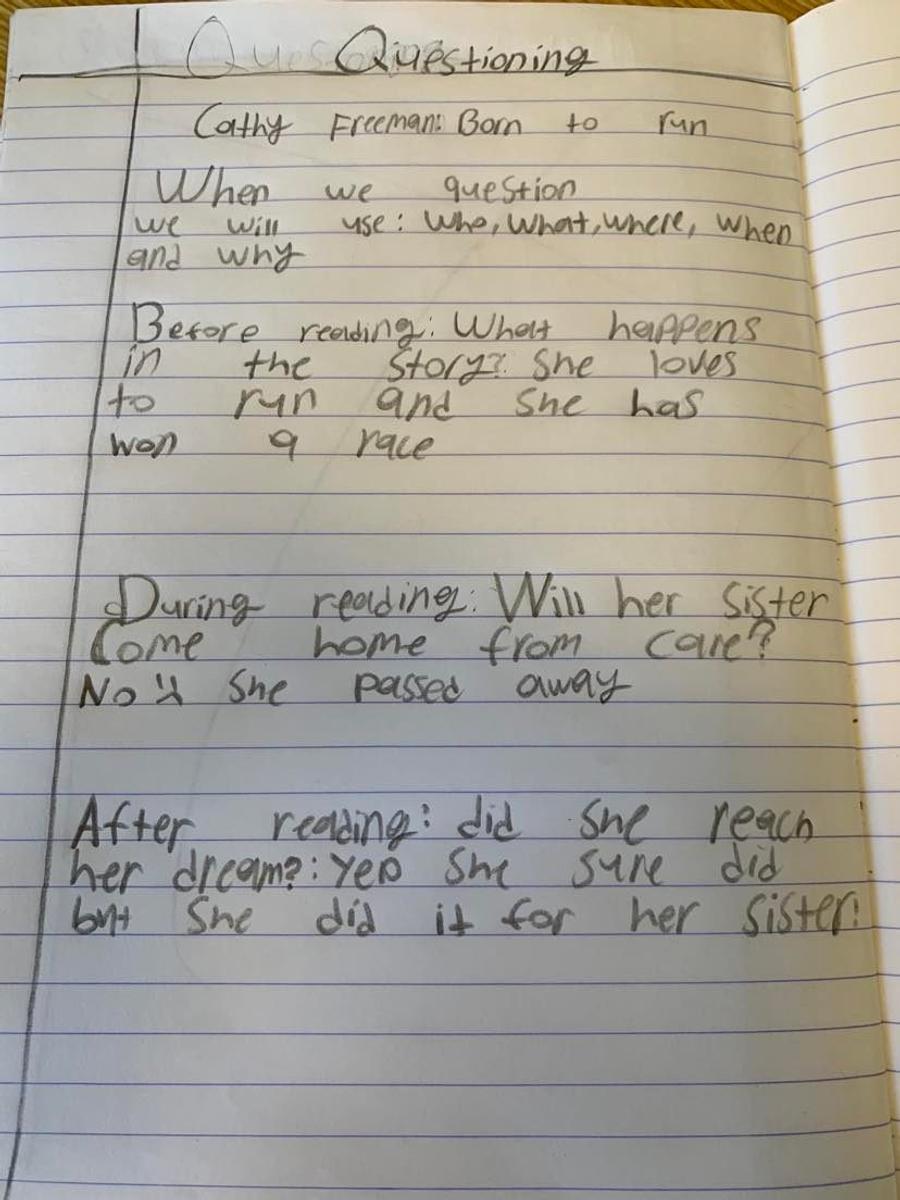 Questioning
Cathy Freeman: Born to run
When we question
we will use: Who, What, where, when
and why
Before reading: What happens
in the story? She loves
to run and she has
won a race
During reading: Will her sister
Come home from care?
No she passed away
After reading: did she reach
her dream?: Yep She sure did
but She did it for her sister!